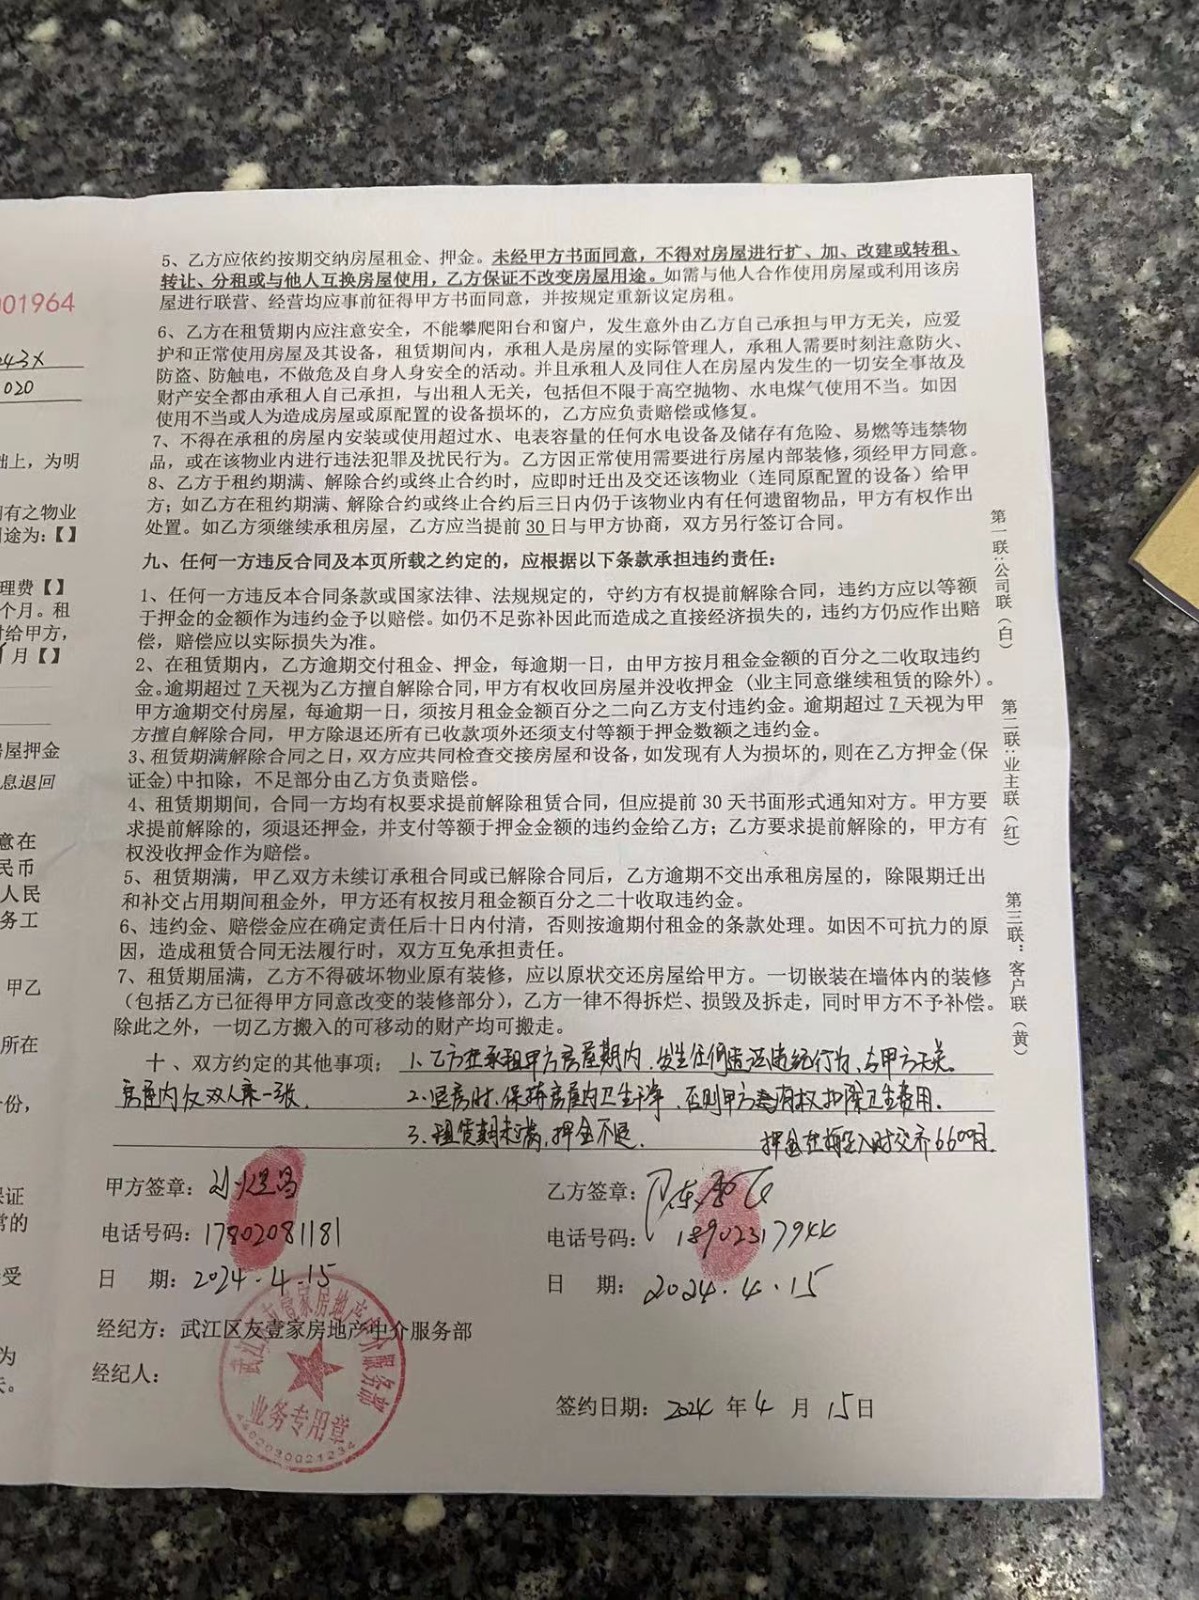 001964
243X
020
础上，为明
拥有之物业
用途为：【】
理费【】
个月。租
付给甲方，
月【】
房屋押金
息退回
意在
民币
人民
务工
甲乙
所在
份，
保证
常的
受
为
失。
5、乙方应依约按期交纳房屋租金、押金。未经甲方书面同意，不得对房屋进行扩、加、改建或转租、
转让、分租或与他人互换房屋使用，乙方保证不改变房屋用途。如需与他人合作使用房屋或利用该房
屋进行联营、经营均应事前征得甲方书面同意，并按规定重新议定房租。
6、乙方在租赁期内应注意安全，不能攀爬阳台和窗户，发生意外由乙方自己承担与甲方无关，应爱
护和正常使用房屋及其设备，租赁期间内，承租人是房屋的实际管理人，承租人需要时刻注意防火、
防盗、防触电，不做危及自身人身安全的活动。并且承租人及同住人在房屋内发生的一切安全事故及
财产安全都由承租人自己承担，与出租人无关，包括但不限于高空抛物、水电煤气使用不当。如因
使用不当或人为造成房屋或原配置的设备损坏的，乙方应负责赔偿或修复。
7、不得在承租的房屋内安装或使用超过水、电表容量的任何水电设备及储存有危险、易燃等违禁物
品，或在该物业内进行违法犯罪及扰民行为。乙方因正常使用需要进行房屋内部装修，须经甲方同意。
8、乙方于租约期满、解除合约或终止合约时，应即时迁出及交还该物业（连同原配置的设备）给甲
方；如乙方在租约期满、解除合约或终止合约后三日内仍于该物业内有任何遗留物品，甲方有权作出
处置。如乙方须继续承租房屋，乙方应当提前 30 日与甲方协商，双方另行签订合同。
九、任何一方违反合同及本页所载之约定的，应根据以下条款承担违约责任：
1、任何一方违反本合同条款或国家法律、法规规定的，守约方有权提前解除合同，违约方应以等额
于押金的金额作为违约金予以赔偿。如仍不足弥补因此而造成之直接经济损失的，违约方仍应作出赔
偿，赔偿应以实际损失为准。
2、在租赁期内，乙方逾期交付租金、押金，每逾期一日，由甲方按月租金金额的百分之二收取违约
金。逾期超过 7 天视为乙方擅自解除合同，甲方有权收回房屋并没收押金（业主同意继续租赁的除外）。
甲方逾期交付房屋，每逾期一日，须按月租金金额百分之二向乙方支付违约金。逾期超过 7 天视为甲
方擅自解除合同，甲方除退还所有已收款项外还须支付等额于押金数额之违约金。
3、租赁期满解除合同之日，双方应共同检查交接房屋和设备，如发现有人为损坏的，则在乙方押金(保
证金)中扣除，不足部分由乙方负责赔偿。
4、租赁期期间，合同一方均有权要求提前解除租赁合同，但应提前 30 天书面形式通知对方。甲方要
求提前解除的，须退还押金，并支付等额于押金金额的违约金给乙方；乙方要求提前解除的，甲方有
权没收押金作为赔偿。
5、租赁期满，甲乙双方未续订承租合同或已解除合同后，乙方逾期不交出承租房屋的，除限期迁出
和补交占用期间租金外，甲方还有权按月租金额百分之二十收取违约金。
6、违约金、赔偿金应在确定责任后十日内付清，否则按逾期付租金的条款处理。如因不可抗力的原
因，造成租赁合同无法履行时，双方互免承担责任。
7、租赁期届满，乙方不得破坏物业原有装修，应以原状交还房屋给甲方。一切嵌装在墙体内的装修
（包括乙方已征得甲方同意改变的装修部分），乙方一律不得拆烂、损毁及拆走，同时甲方不予补偿。
除此之外，一切乙方搬入的可移动的财产均可搬走。
十、双方约定的其他事项：1、乙方在承租甲方房屋期内，发生任何违法违纪行为，与甲方无关。
房屋内 双人床一张
2、退房时，保持房屋内卫生干净，否则甲方有权扣除卫生费用。
3、租赁期未满，押金不退。
押金在 入时交齐6600
甲方签章：
电话号码：17802081181
日 期：2024.4.15
乙方签章：
电话号码：18902317944
日 期：2024.4.15
经纪方：武江区友壹家房地产中介服务部
经纪人：
签约日期：2024 年 4 月 15 日
武江区友壹家房地产中介服务部
业务专用章
4402030021234
第一联：公司联（白）
第二联：业主联（红）
第三联：客户联（黄）